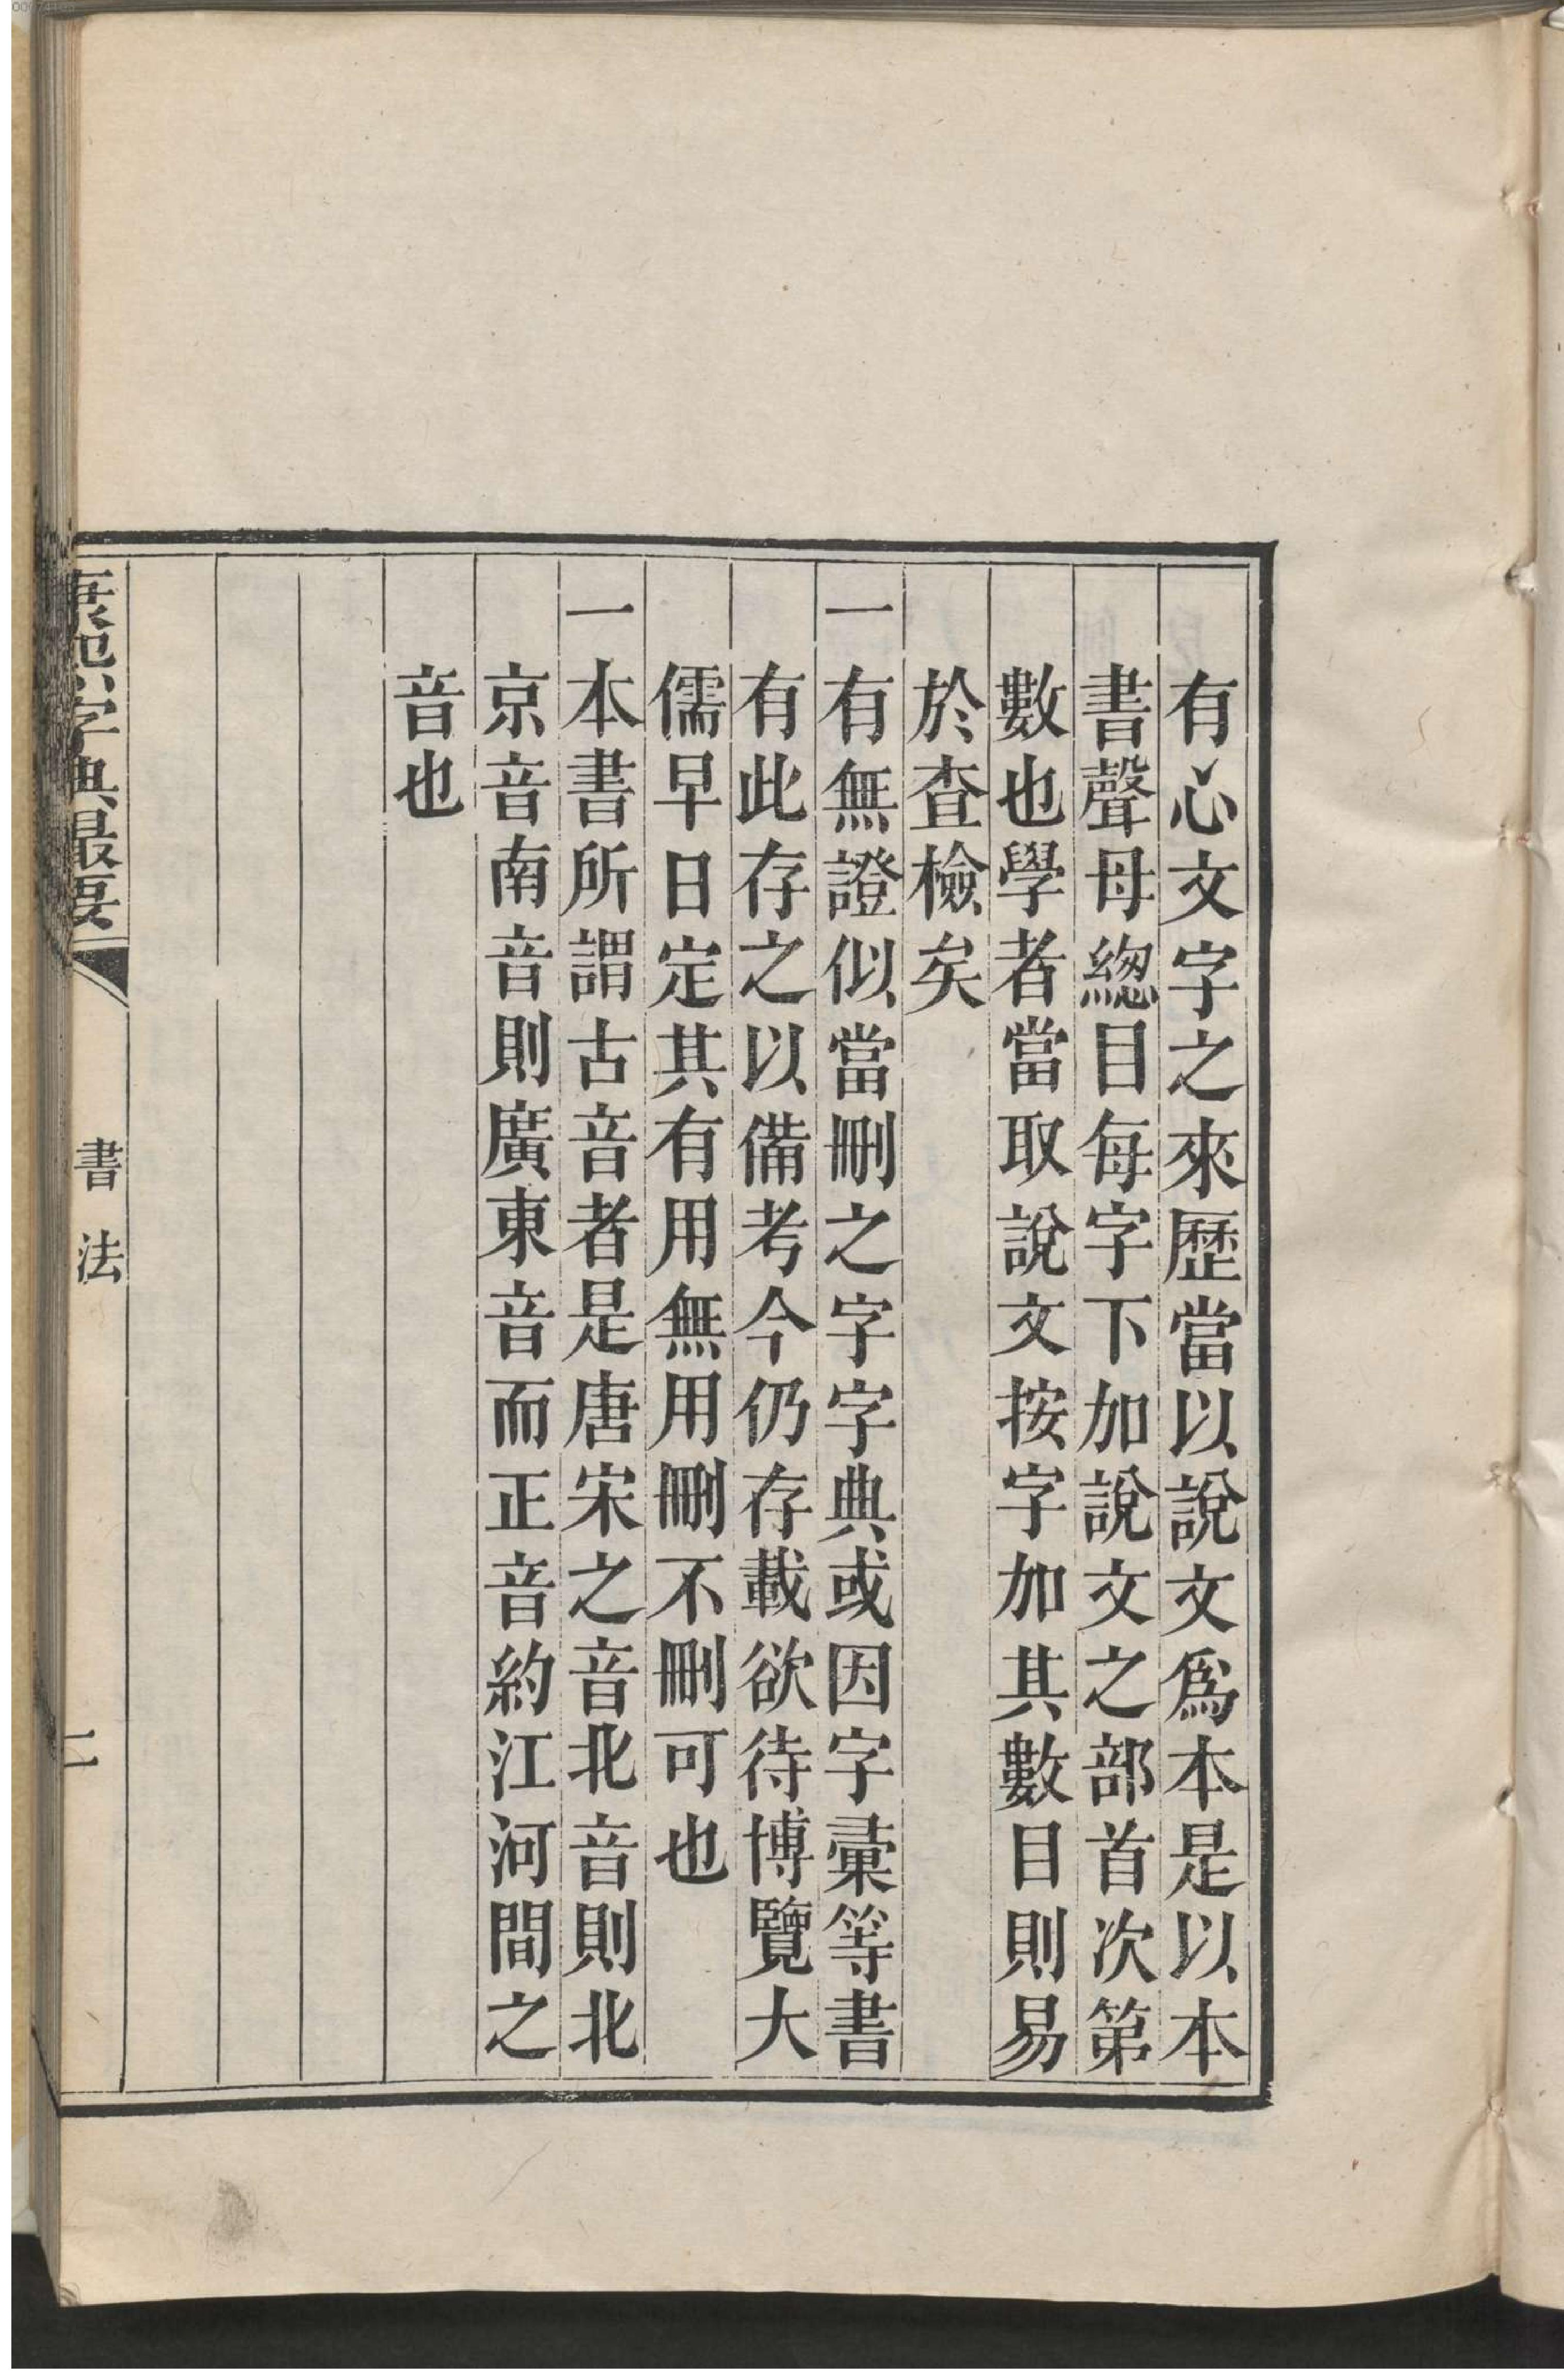 有心文字之來歷當以說文爲本是以本
書聲母緫目每字下加說文之部首次第
數也學者當取說文按字加其數目則易
於查檢矣
一有無證似當刪之字字典或因字彙等書
有此存之以備考今仍存載欲待博覽大
儒早日定其有用無用刪不刪可也
一本書所謂古音者是唐宋之音北音則北
京音南音則廣東音而正音約江河間之
音也
康熙字典最要
書法